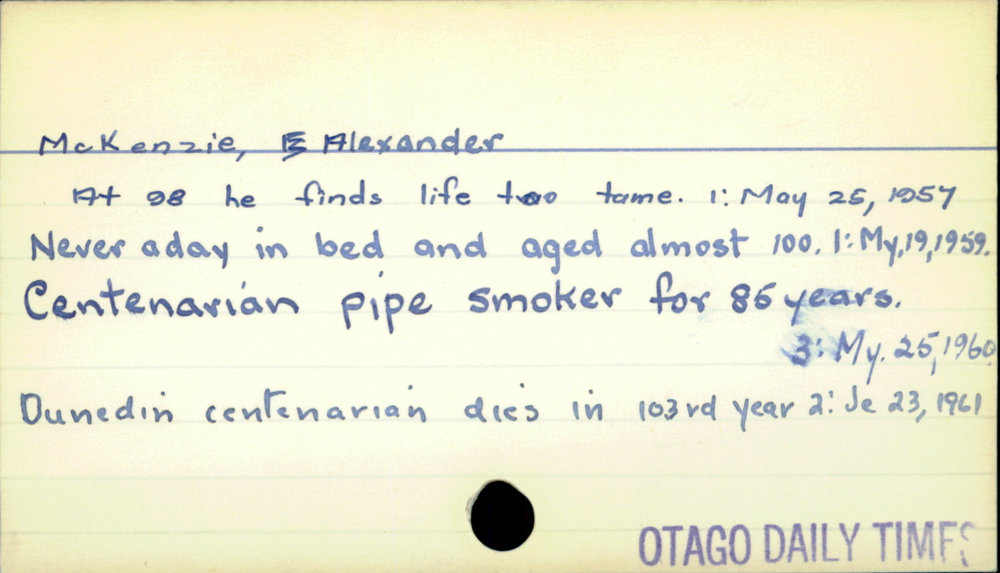 McKenzie, Alexander
At 98 he finds life too tame. 1: May 25, 1957
Never a day in bed and aged almost 100. 1: My, 19, 1959.
Centenarian pipe smoker for 85 years.
3: My. 25, 1960
Dunedin centenarian dies in 103rd year 2: Je 23, 1961
OTAGO DAILY TIMES